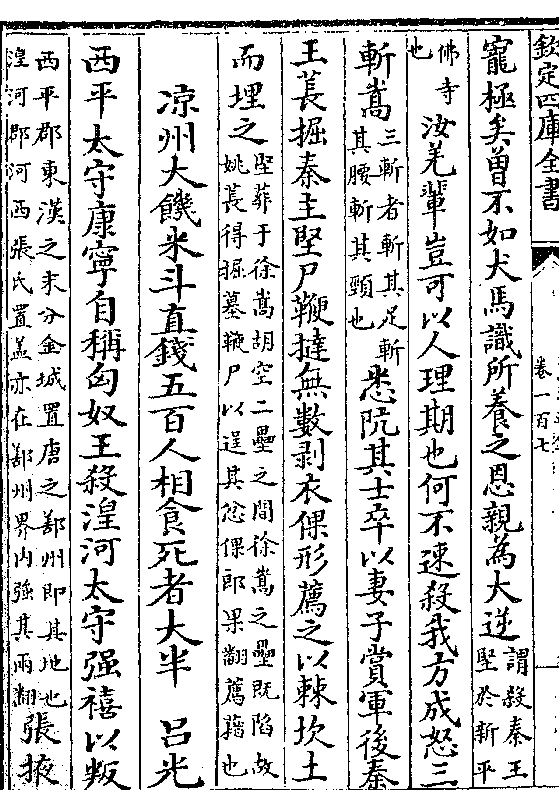 欽定四庫全書
卷一百七
寵極矣曾不如犬馬識所養之恩親為大逆謂殺秦王堅於新平
佛寺也汝羌輩豈可以人理期也何不速殺我方成怒三
斬嵩三斬者斬其足斬其腰斬其頸也悉阬其士卒以妻子賞軍後秦
王萇掘秦主堅尸鞭撻無數剥衣倮形薦之以棘坎土
而埋之堅葬于徐嵩胡空二壘之間徐嵩之壘既陷故姚萇得掘墓鞭尸以逞其忿倮郎果翻薦藉也
凉州大饑米斗直錢五百人相食死者大半 吕光
西平太守康寧自稱匈奴王殺湟河太守强禧以叛
西平郡東漢之末分金城置唐之鄯州即其地也湟河郡河西張氏置盖亦在鄯州界内强其兩翻張掖